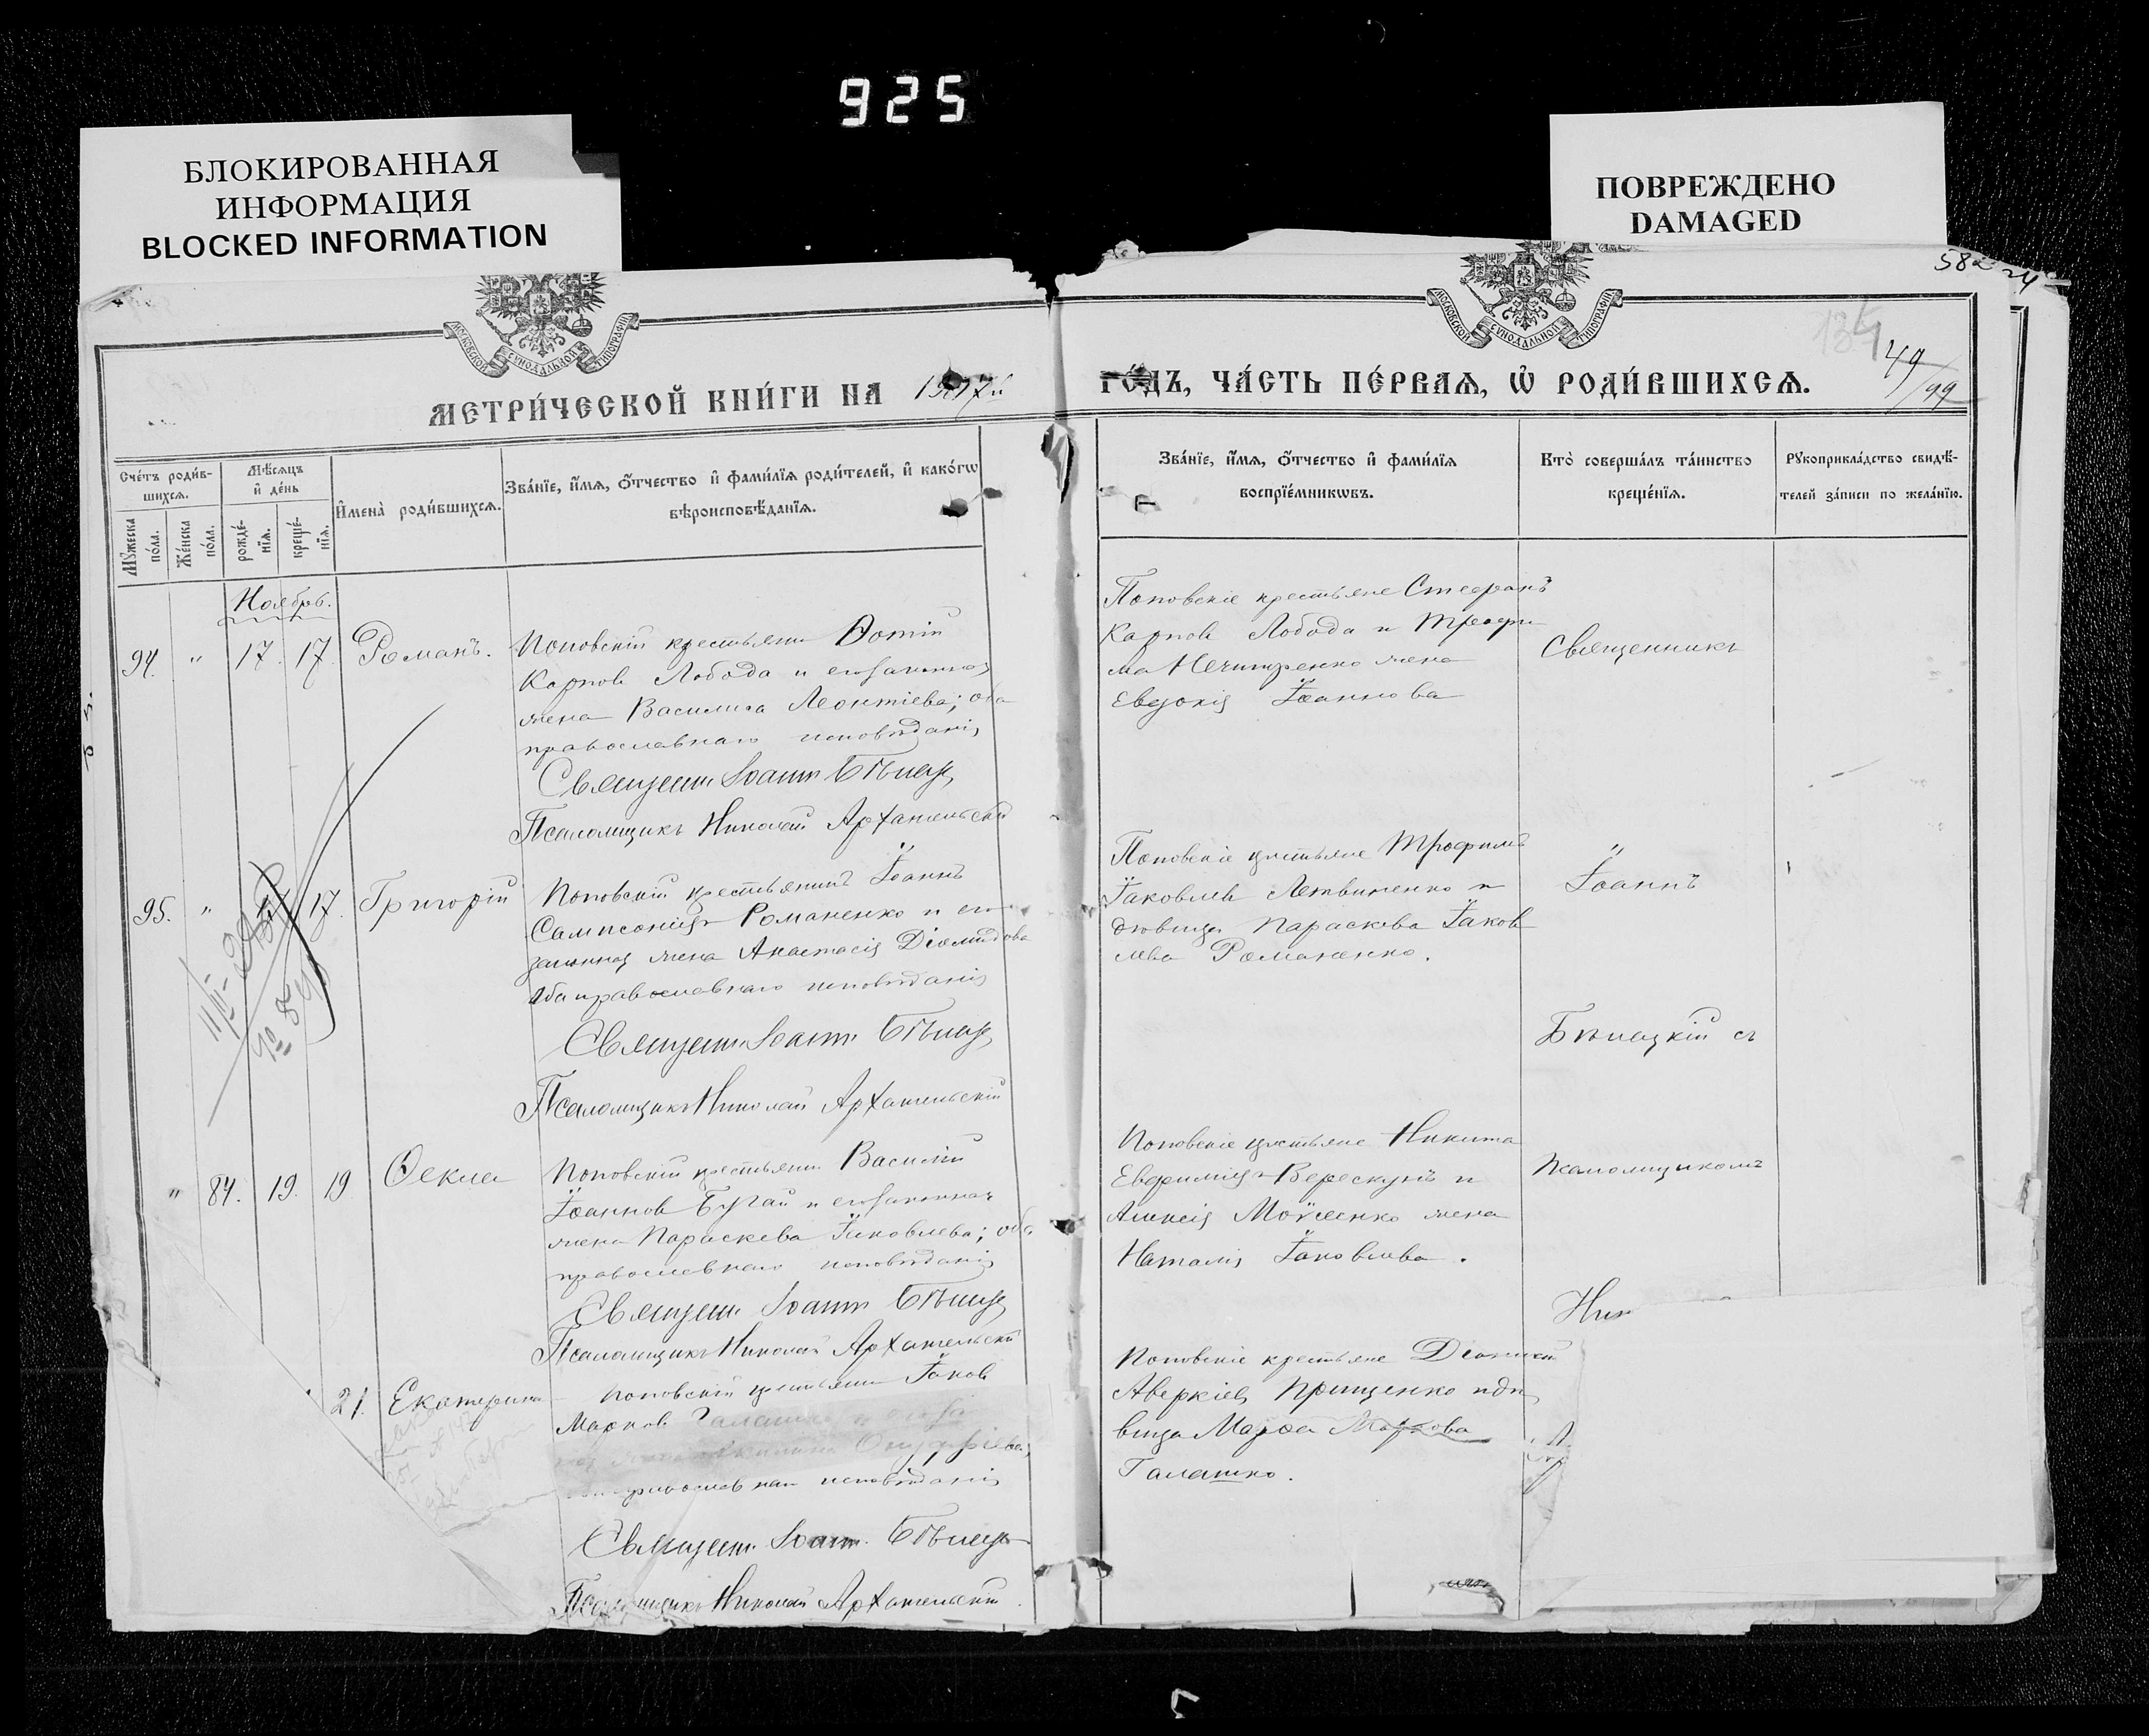 925
БЛОКИРОВАННАЯ
ИНФОРМАЦИЯ
BLOCKED INFORMATION
ПОВРЕЖДЕНО
DAMAGED
МОСКОВСКОЙ СѴНОДАЛЬНОЙ ТИПОГРАФІИ
МОСКОВСКОЙ СѴНОДАЛЬНОЙ ТИПОГРАФІИ
134
49
99
МЕТРИ́ЧЕСКОЙ КНИ́ГИ НА
ГО́ДЪ, ЧА́СТЬ ПЕ́РВАѦ, Ѡ҆ РОДИ́ВШИХСѦ.
Сче́тъ роди́в-
шихсѧ.
Мꙋ́жеска
по́ла.
Же́нска
по́ла.
Мѣ́сѧцъ
и҆ де́нь
рожде́-
нїѧ.
креще́-
нїѧ.
И҆мена̀ роди́вшихсѧ.
Зва́нїе, и҆́мѧ, ѻ҆́тчество и҆ фами́лїѧ роди́телей, и҆ како́гѡ
вѣроисповѣ́данїѧ.
Зва́нїе, и҆́мѧ, ѻ҆́тчество и҆ фами́лїѧ
воспрїе́мникѡвъ.
Кто̀ соверша́лъ та́инство
креще́нїѧ.
Рꙋкоприкла́дство свидѣ́-
телей за́писи по жела́нїю.
Ноябрь.
94. " 17. 17. Романъ.
Поповскій крестьянин Ѳотій
Карпов Лобода и его законная
жена Василиса Леонтіева; оба
православнаго исповѣданія
Священ. Іоанн Бѣлец.
Псаломщикъ Николай Архангельскій
Поповскіе крестьяне Стефанъ
Карпов Лобода и Трофи-
ма жена
Евдокія Іоаннова
Священникъ
95. " 17. Григорій
Поповскій крестьянинъ Іоаннъ
Сампсоніев Романенко и его
законная жена Анастасія Діомидова
оба православнаго исповѣданія
Священ. Іоанн. Бѣлец.
Псаломщикъ Николай Архангельскій
Поповскіе крестьяне Трофимъ
Іаковлев Литвиненко и
вдовица Параскева Іаков
лева Романенко.
"
Іоаннъ
Бѣлецкій съ
" 84. 19. 19 Ѳекла
Поповскій крестьянин Василій
Іоаннов Бугай и его законная
жена Параскева Іаковлева; оба
православнаго исповѣданія
Священ. Іоанн Бѣлец.
Псаломщикъ Николай Архангельскій
Поповскіе крестьяне Никита
Евфиміев Верескунъ и
Алексія Мойсеенко жена
Наталія Іаковлева.
псаломщикомъ
Ник
21. Екатерина
Поповскій крестьянин Іаков
Марков Галашко и его за
Онуфріева;
православнаго исповѣданія
Священ. Іоанн. Бѣлец.
Псаломщикъ Николай Архангельскій
Поповскіе крестьяне Діонисій
Аверкіев Прищенко и вдо
вица Марѳа Маркова
Галашко.